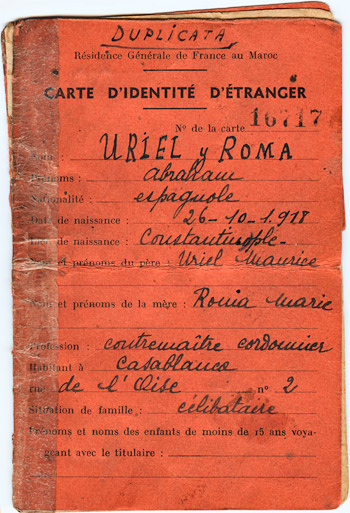 DUPLICATA
Résidence Générale de France au Maroc
CARTE D'IDENTITÉ D'ÉTRANGER
Nº de la carte 16717
Nom : URIEL y ROMA
Prénoms : abraham
Nationalité : espagnole
Date de naissance : 26-10-1918
Lieu de naissance : Constantinople-
Nom et prénoms du père : Uriel Maurice
Nom et prénoms de la mère : Roma Marie
Profession : contremaître cordonnier
Habitant à Casablanca
rue de l'Oise nº 2
Situation de famille : célibataire
Prénoms et noms des enfants de moins de 15 ans voya-
geant avec le titulaire :